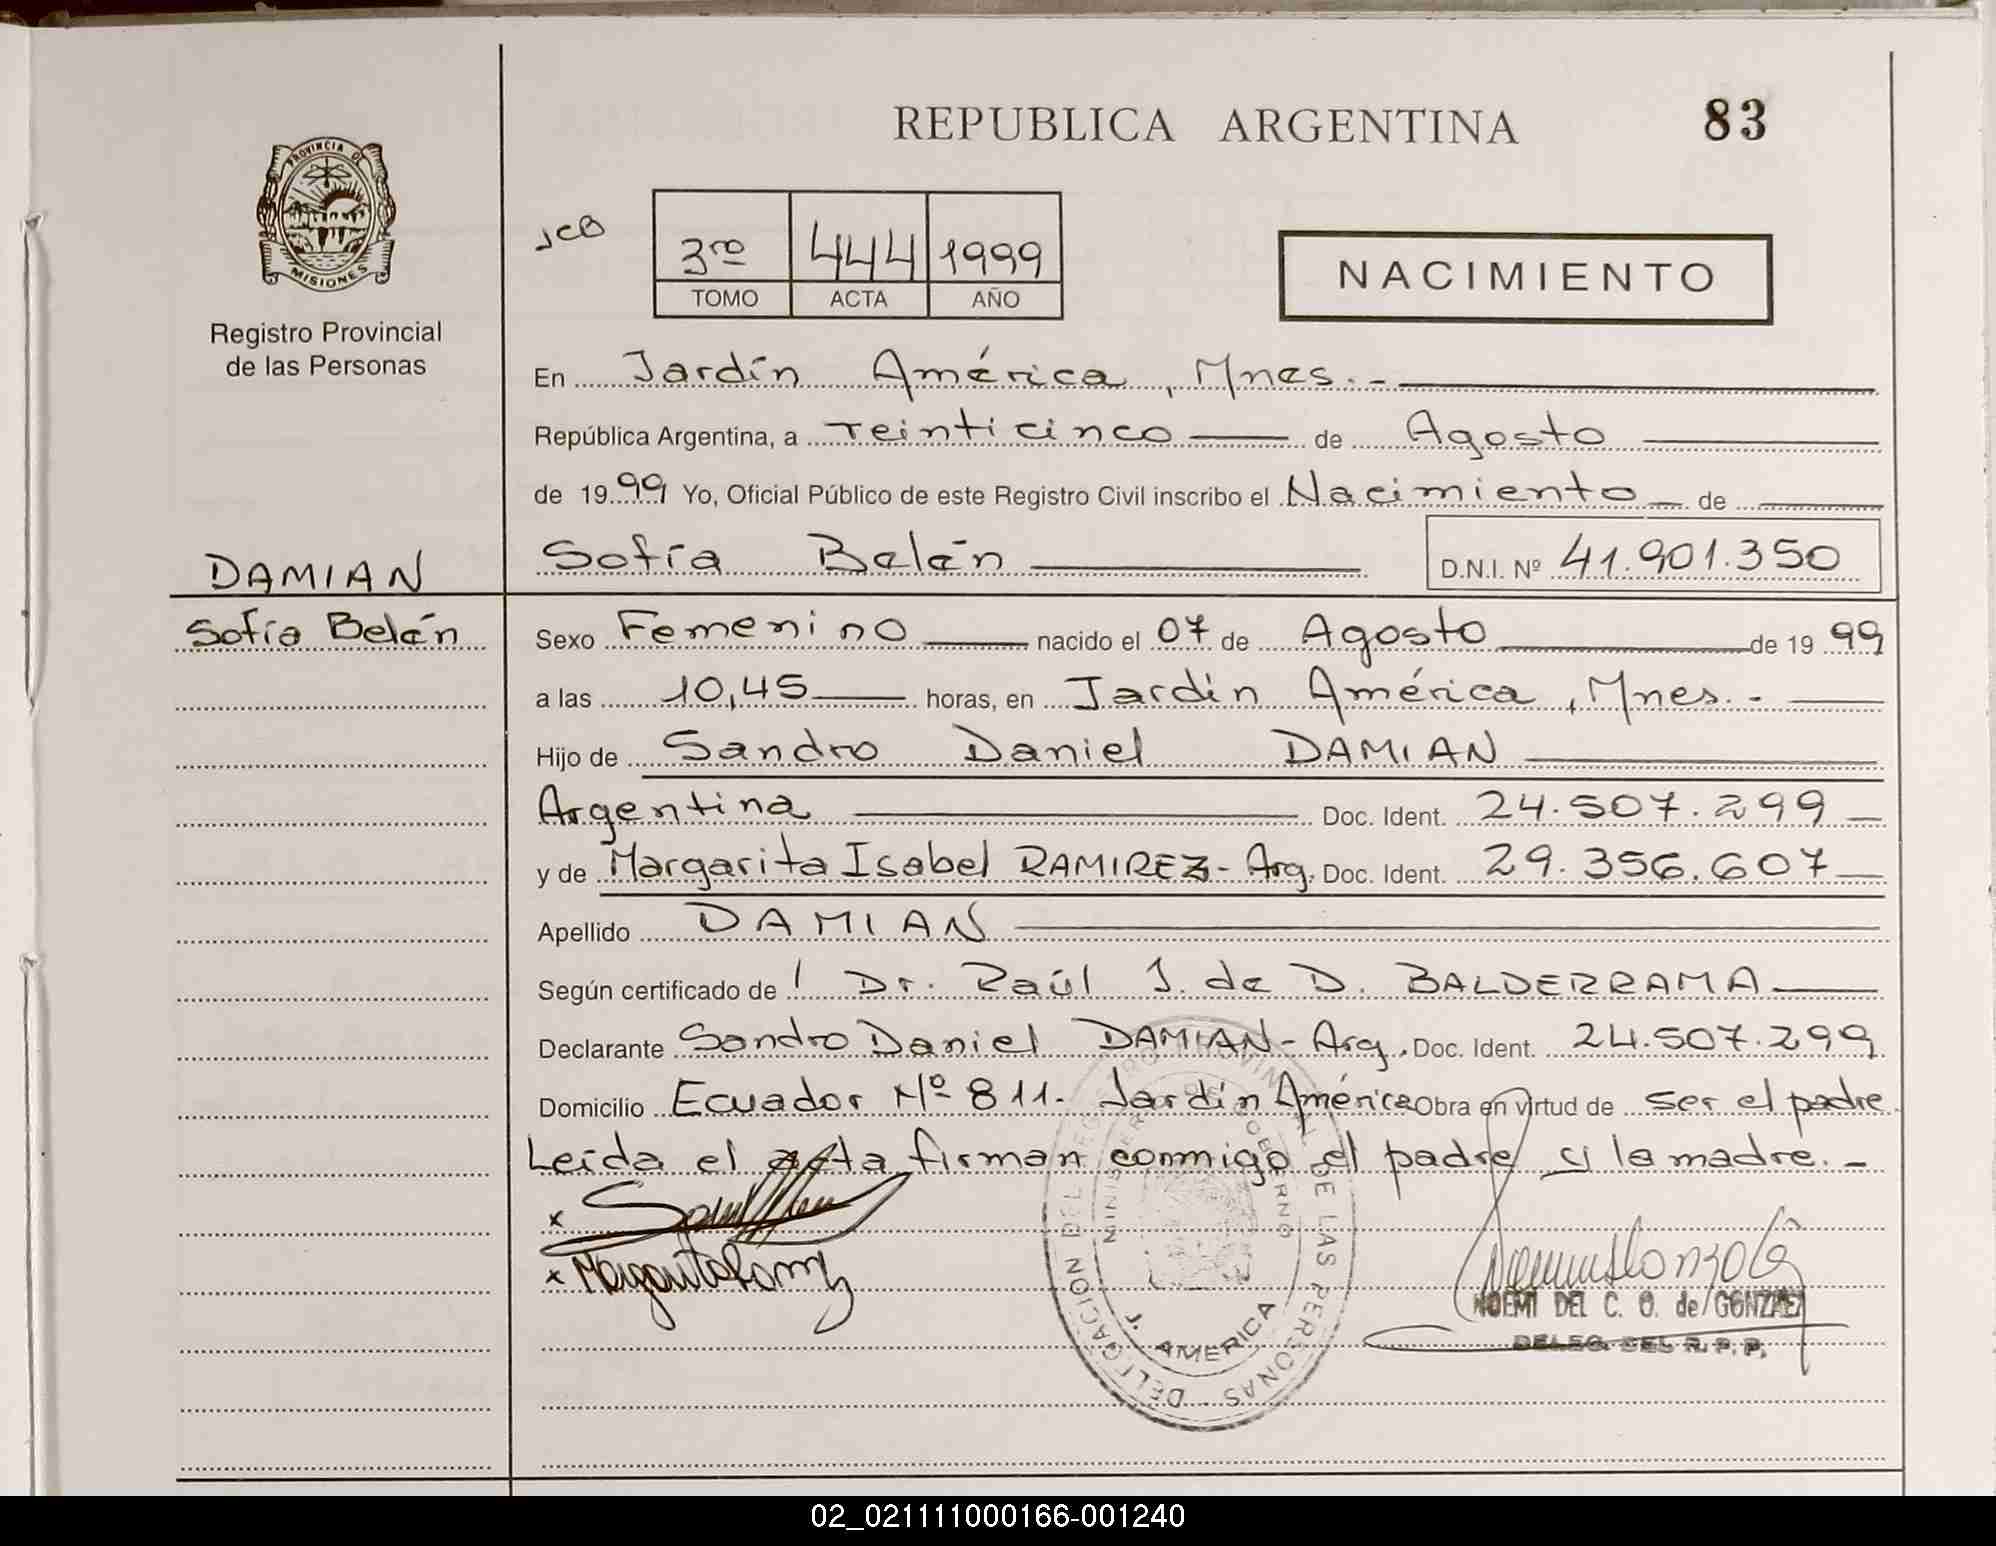 REPUBLICA ARGENTINA 83
PROVINCIA DE
MISIONES
Registro Provincial
de las Personas
JCB
3ro 444 1999
TOMO ACTA AÑO
NACIMIENTO
En Jardín América, Mnes.-
República Argentina, a veinticinco de Agosto
de 1999 Yo, Oficial Público de este Registro Civil inscribo el Nacimiento de
Sofía Belén D.N.I. Nº 41.901.350
DAMIAN
Sofía Belén
Sexo Femenino nacido el 07 de Agosto de 1999
a las 10,45 horas, en Jardín América, Mnes.-
Hijo de Sandro Daniel DAMIAN
Argentina Doc. Ident. 24.507.299
y de Margarita Isabel RAMIREZ- Arg. Doc. Ident. 29.356.607
Apellido DAMIAN
Según certificado de Dr. Raúl J. de D. BALDERRAMA
Declarante Sandro Daniel DAMIAN- Arg. Doc. Ident. 24.507.299
Domicilio Ecuador Nº 811- Jardín América Obra en virtud de ser el padre.
Leída el acta firman conmigo el padre y la madre.-
x
x Margarita Ramirez
DELEGACION DEL REGISTRO PROVINCIAL DE LAS PERSONAS
MINISTERIO DE GOBIERNO
J. AMERICA
NOEMI DEL C. O. de GONZALEZ
DELEG. DEL R.P.P.
02_021111000166-001240